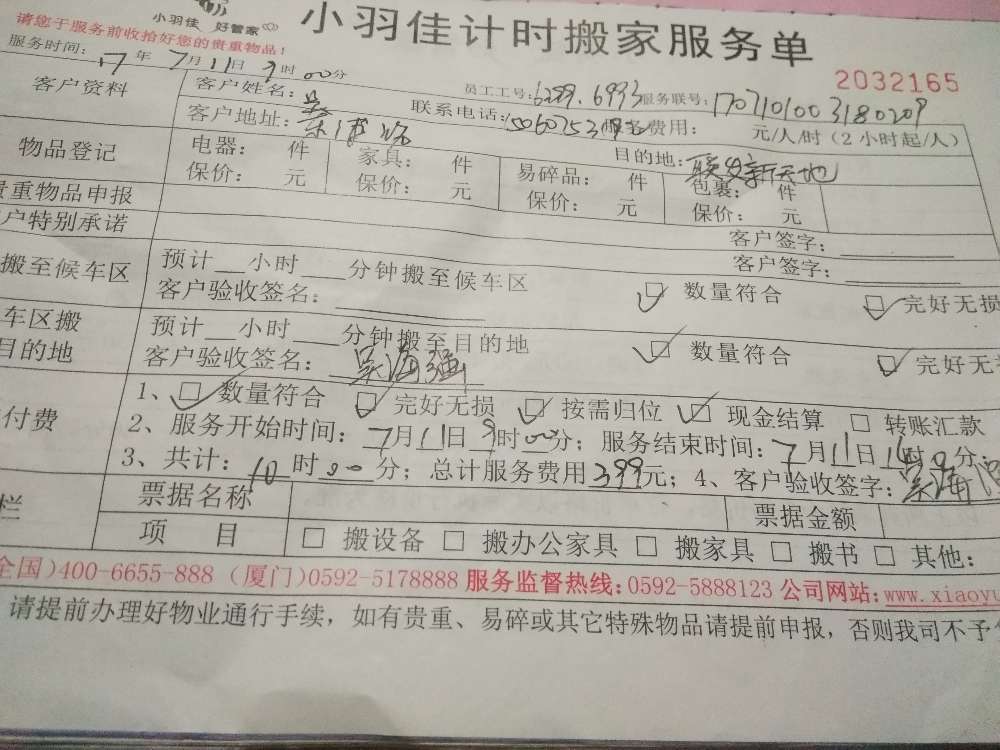 小羽佳 好管家
小羽佳计时搬家服务单
请您于服务前收拾好您的贵重物品！
2032165
服务时间：17年7月11日9时00分
员工工号：6289.6993 服务联号：1707101003180209
客户资料
客户姓名：吴 联系电话：5060753 服务费用： 元/人/时（2小时起/人）
客户地址： 目的地：联发新天地
物品登记
电器： 件 家具： 件 易碎品： 件 包裹： 件
保价： 元 保价： 元 保价： 元 保价： 元
贵重物品申报 客户签字：
户特别承诺 客户签字：
搬至候车区
预计__小时___分钟搬至候车区
客户验收签名： □ 数量符合 □ 完好无损
车区搬
目的地
预计__小时___分钟搬至目的地
客户验收签名：吴海强 □ 数量符合 □ 完好无
付费
1、□ 数量符合 □ 完好无损 □ 按需归位 □ 现金结算 □ 转账汇款
2、服务开始时间：7月11日9时00分；服务结束时间：7月11日 时 分；
3、共计：10时00分；总计服务费用399元；4、客户验收签字：吴海
栏
票据名称 票据金额
项 目 □ 搬设备 □ 搬办公家具 □ 搬家具 □ 搬书 □ 其他：
全国)400-6655-888 (厦门)0592-5178888 服务监督热线：0592-5888123 公司网站：www.xiaoyu
请提前办理好物业通行手续，如有贵重、易碎或其它特殊物品请提前申报，否则我司不予